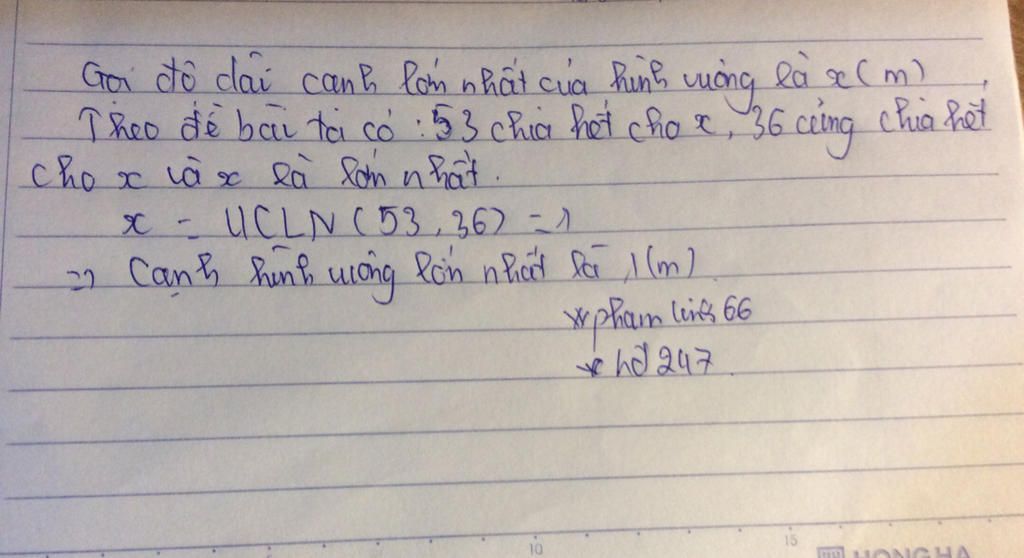 Gọi độ dài cạnh lớn nhất của hình vuông là x (m)
Theo đề bài ta có : 53 chia hết cho x, 36 cũng chia hết
cho x và x là lớn nhất.
x = ƯCLN (53, 36) = 1
=> Cạnh hình vuông lớn nhất là 1(m)
*pham linh 66
* hđ 247
10
15
HONG HA